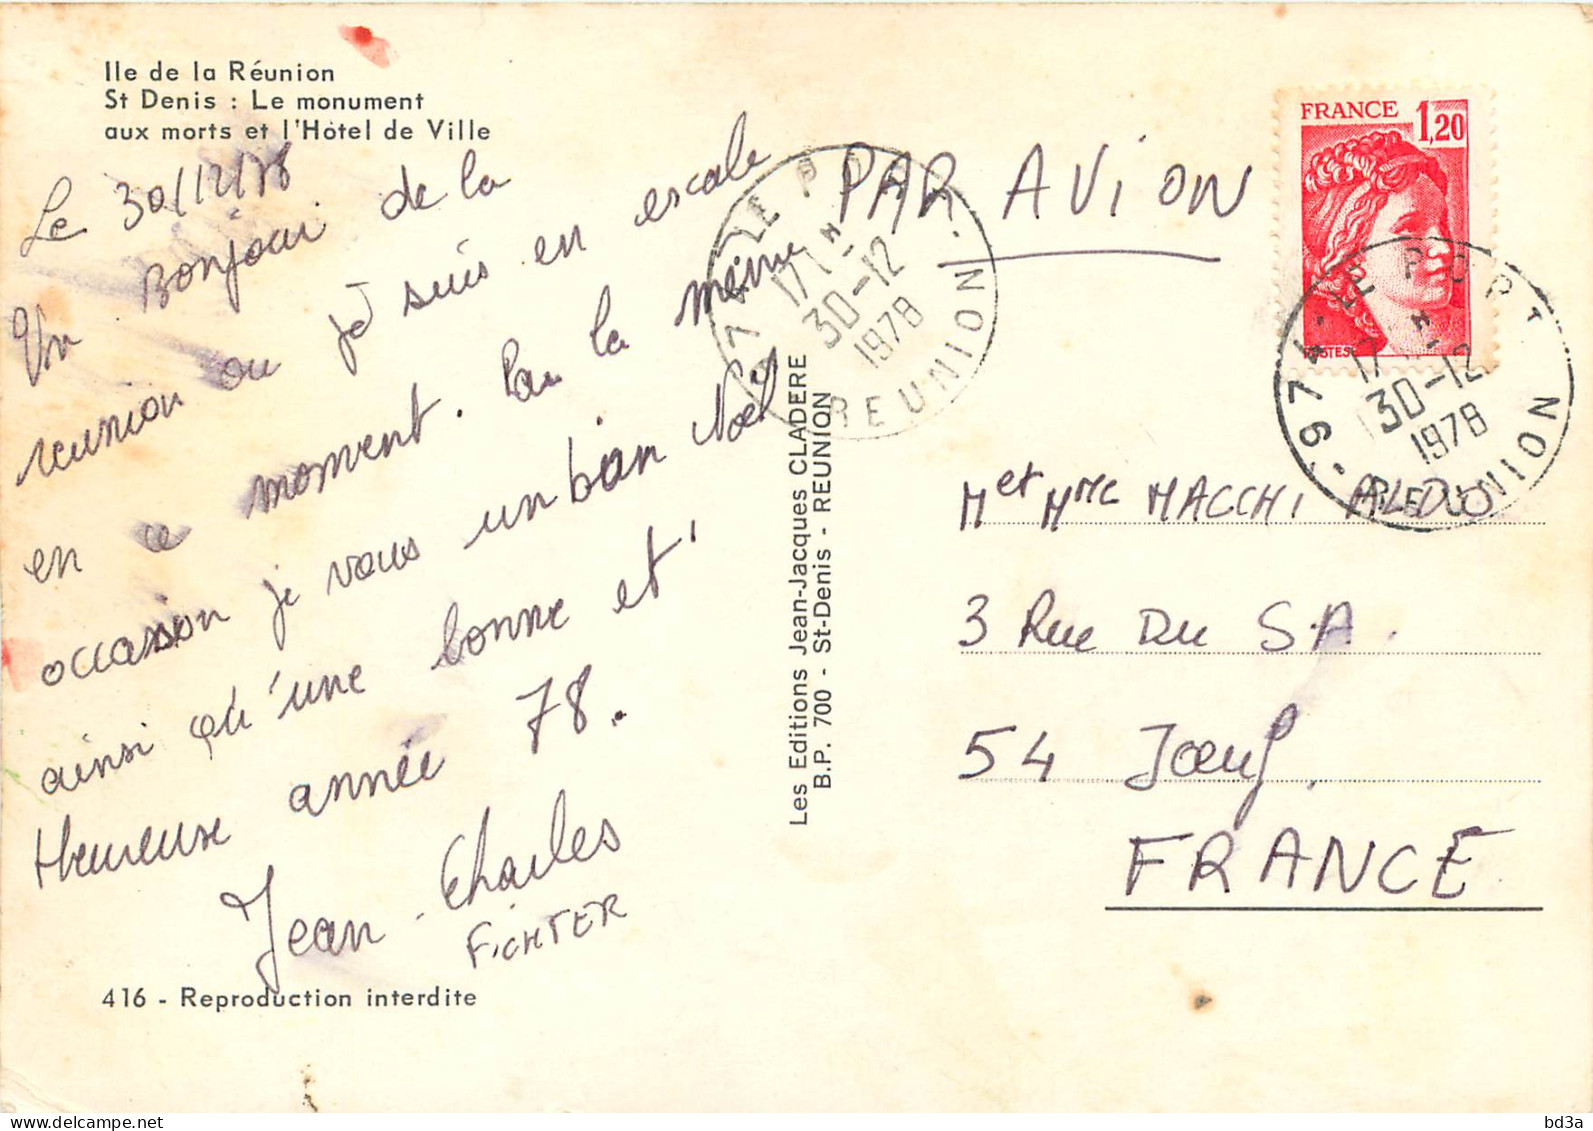 Ile de la Réunion
St Denis : Le monument
aux morts et l'Hôtel de Ville
Le 30/12/78
Un Bonjour de la
reunion ou je suis en escale
en ce moment. Par la meme
occassion je vous un bon Noël
ainsi qu'une bonne et
Heureuse année 78.
Jean-Charles
FICHTER
416 - Reproduction interdite
Les Editions Jean-Jacques CLADERE
B.P. 700 - St-Denis - REUNION
974 - LE PORT
17 H
30-12
1978
REUNION
PAR AVION
FRANCE 1,20
POSTES
974 - LE PORT
17
30-12
1978
REUNION
M et Mme MACCHI ALDO
3 Rue Du S.A.
54 Jœuf.
FRANCE
bd3a